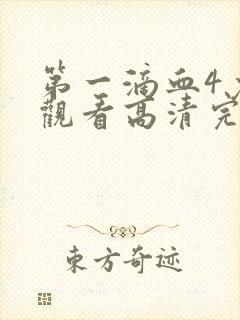 第一滴血4
觀看高清完
東方奇迹